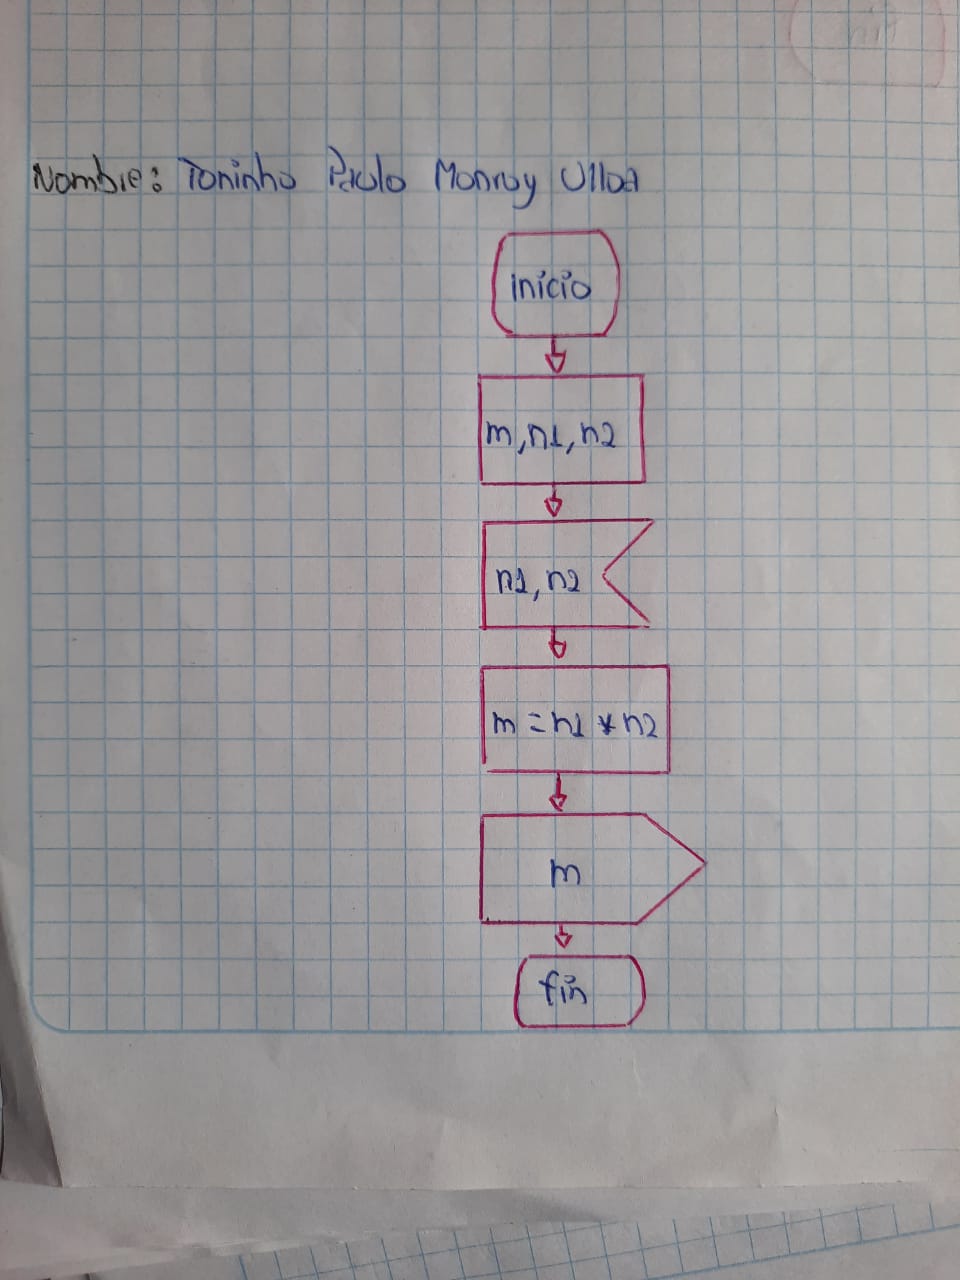 Nombre: Toninho Paulo Monroy Ulloa
inicio
m, n1, n2
n1, n2
m = n1 * n2
m
fin